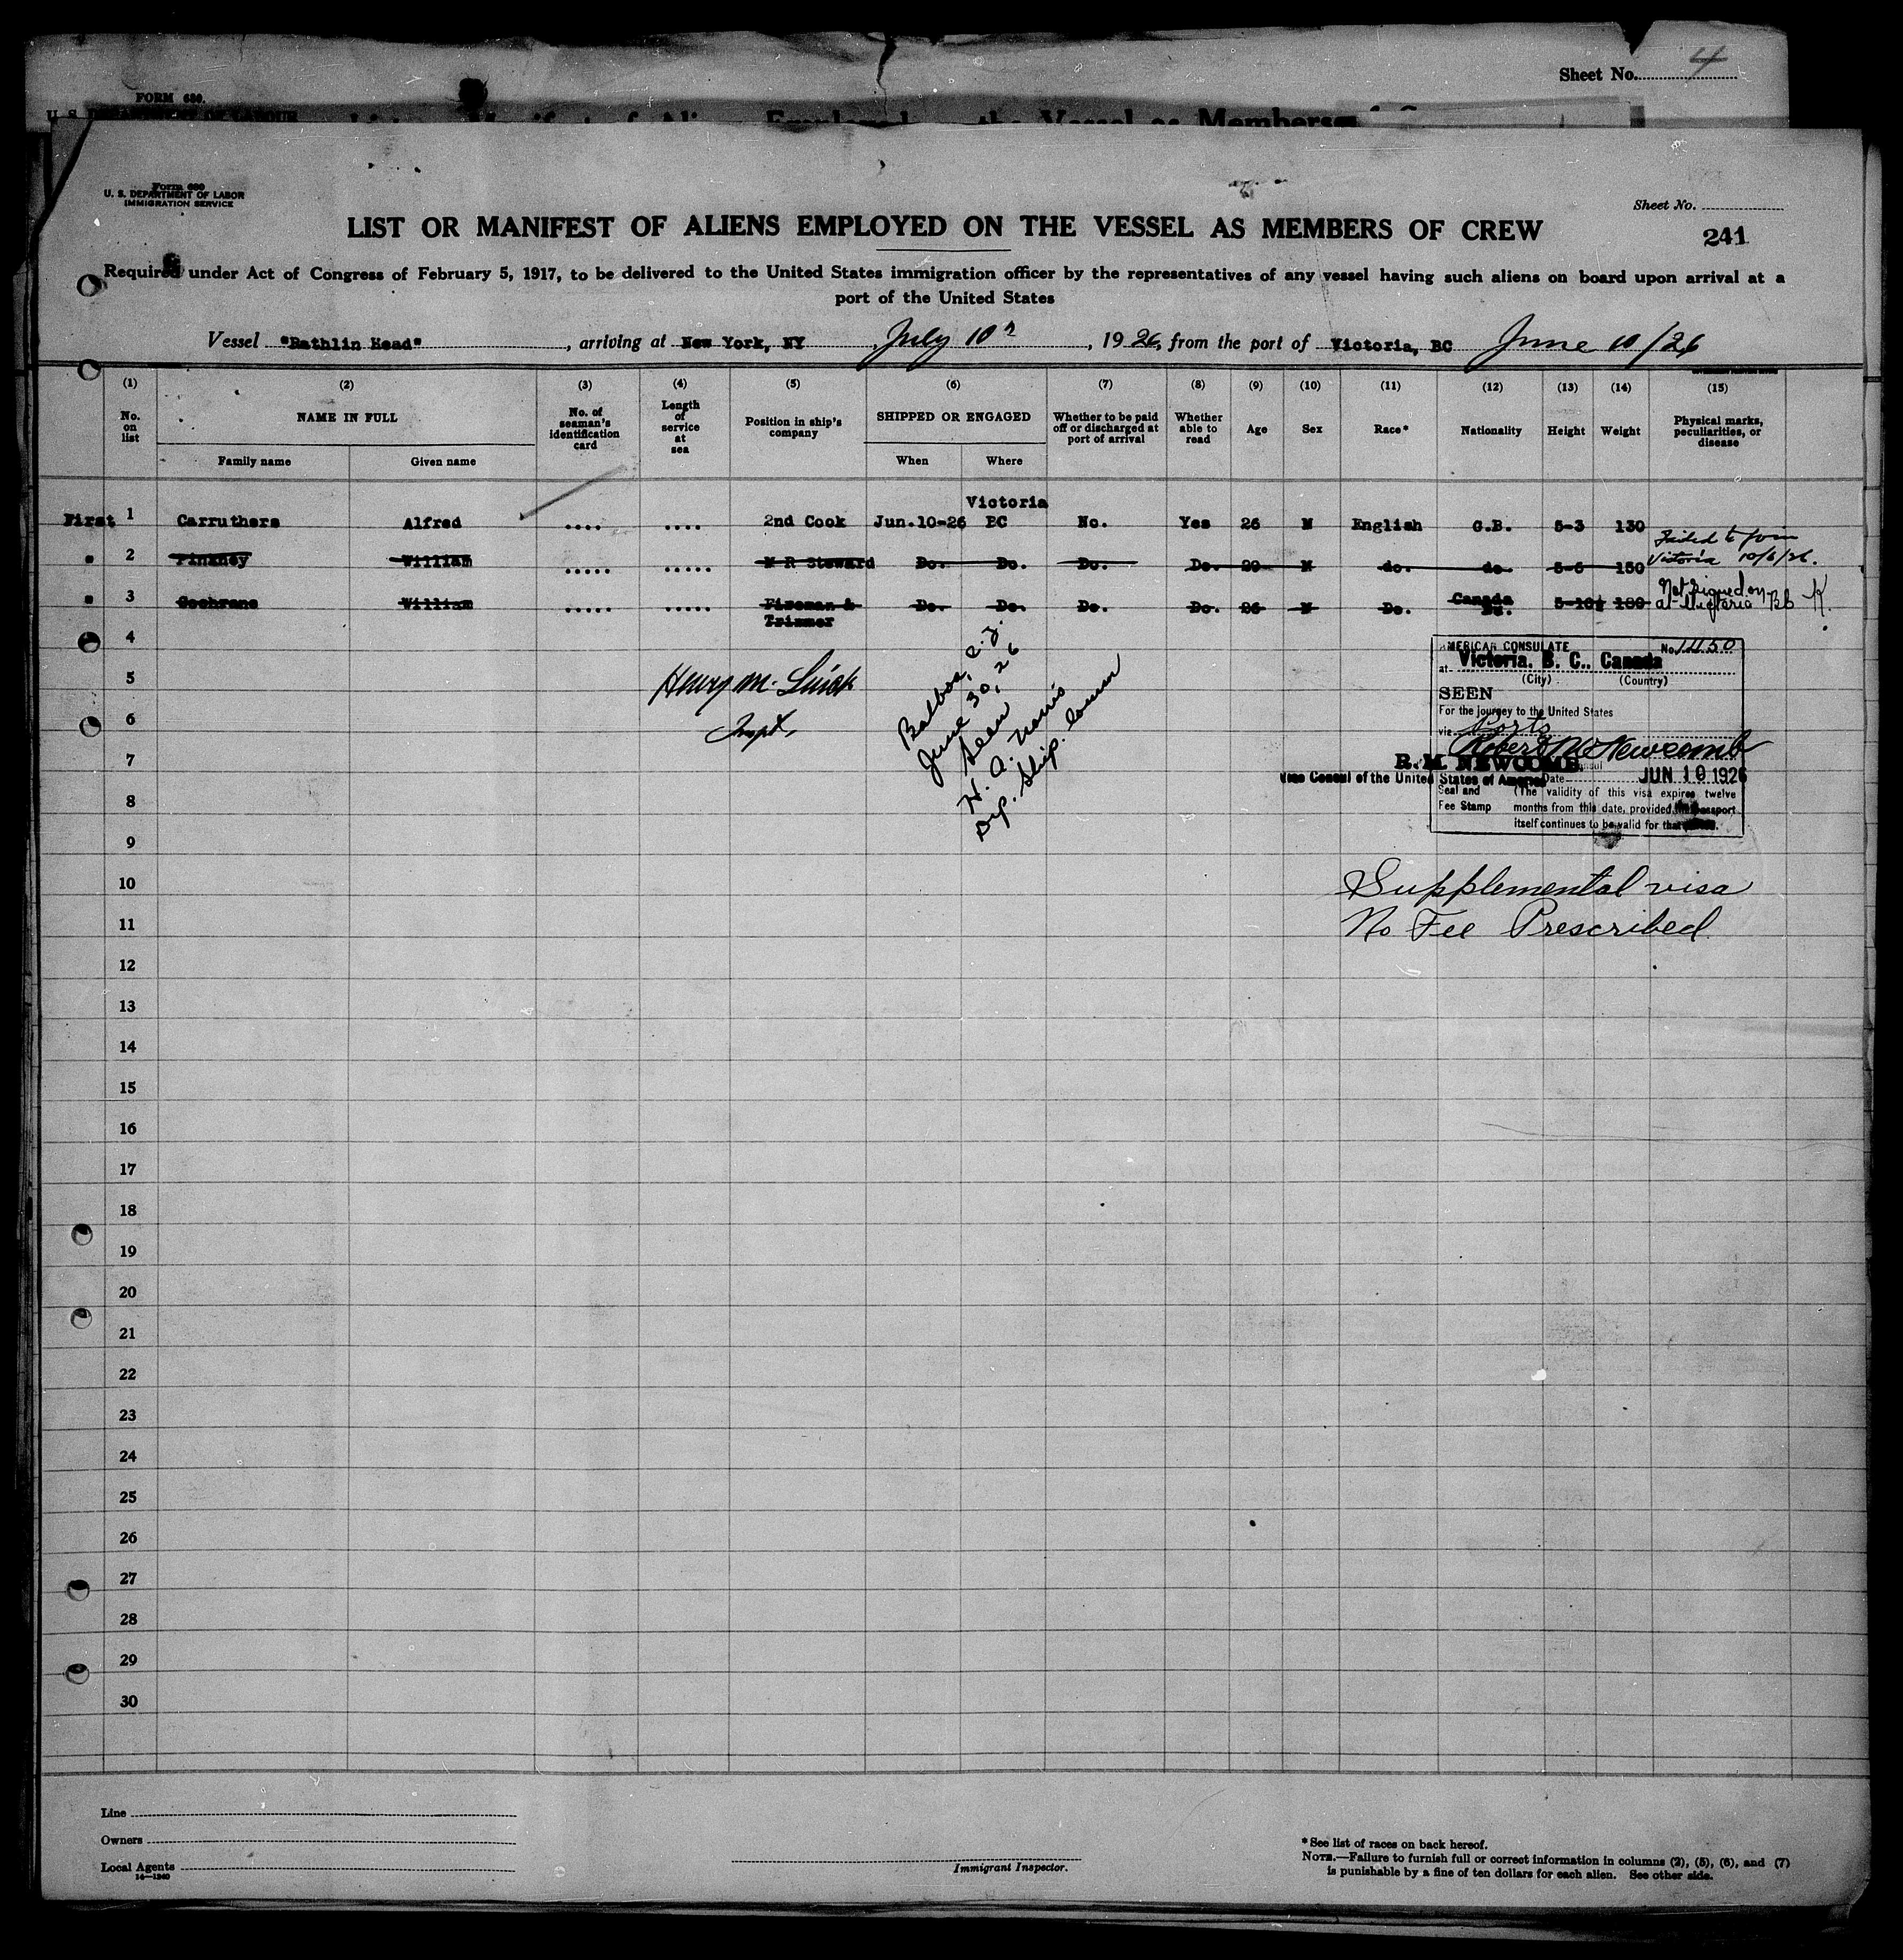 Sheet No. 4
FORM 680.
U. S. DEPARTMENT OF LABOUR
Form 680
U. S. DEPARTMENT OF LABOR
IMMIGRATION SERVICE
Sheet No.
241
LIST OR MANIFEST OF ALIENS EMPLOYED ON THE VESSEL AS MEMBERS OF CREW
Required under Act of Congress of February 5, 1917, to be delivered to the United States immigration officer by the representatives of any vessel having such aliens on board upon arrival at a
port of the United States
Vessel "Rathlin Head", arriving at New York, NY, July 10, 1926, from the port of Victoria, BC June 10/26
(1) (2) (3) (4) (5) (6) (7) (8) (9) (10) (11) (12) (13) (14) (15)
No. on list
NAME IN FULL
Family name Given name
No. of seaman's identification card
Length of service at sea
Position in ship's company
SHIPPED OR ENGAGED
When Where
Whether to be paid off or discharged at port of arrival
Whether able to read
Age
Sex
Race*
Nationality
Height
Weight
Physical marks, peculiarities, or disease
First 1 Carruthers Alfred .... .... 2nd Cook Jun.10-26 Victoria BC No. Yes 26 M English G.B. 5-3 130
" 2 Pinkney William ..... ..... M R Steward Do. Do. Do. Do. 20 M do. do. 5-6 150 Failed to join Victoria 10/6/26.
" 3 Cochrane William ..... ..... Fireman & Trimmer Do. Do. Do. Do. 26 M Do. Canada Do. 5-10½ 180 Not signed on at Victoria BC K.
4
5
6
7
8
9
10
11
12
13
14
15
16
17
18
19
20
21
22
23
24
25
26
27
28
29
30
Henry M.
Inspt.
Balboa, C.Z.
June 30, 26
Seen
H. A. Norris
Dep. Ship. Comm
AMERICAN CONSULATE No. 1450
at Victoria, B. C., Canada
(City) (Country)
SEEN
For the journey to the United States
via Ports
Robert M Newcomb
R. M. NEWCOMB,
Vice Consul of the United States of America Date JUN 10 1926
Seal and Fee Stamp
(The validity of this visa expires twelve
months from this date, provided the passport
itself continues to be valid for that
Supplemental visa
No Fee Prescribed
Line
Owners
Local Agents
14—1240
Immigrant Inspector.
*See list of races on back hereof.
NOTE.—Failure to furnish full or correct information in columns (2), (5), (6), and (7)
is punishable by a fine of ten dollars for each alien. See other side.